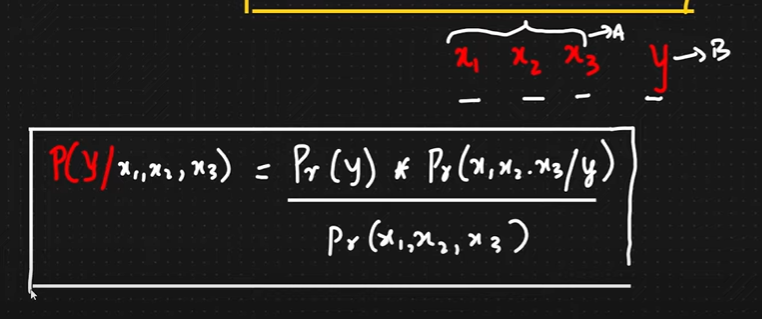 x₁ x₂ x₃ →A y →B
P(y/x₁,x₂,x₃) = Pr(y) * Pr(x,x₂.x₃/y)
Pr(x₁,x₂,x₃)